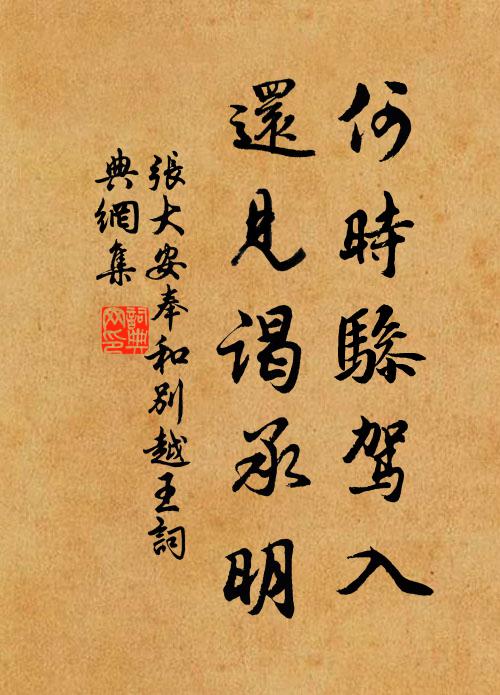 何時驂駕入
還見謁承明
張大安奉和別越王詞
典網集
詞典網印